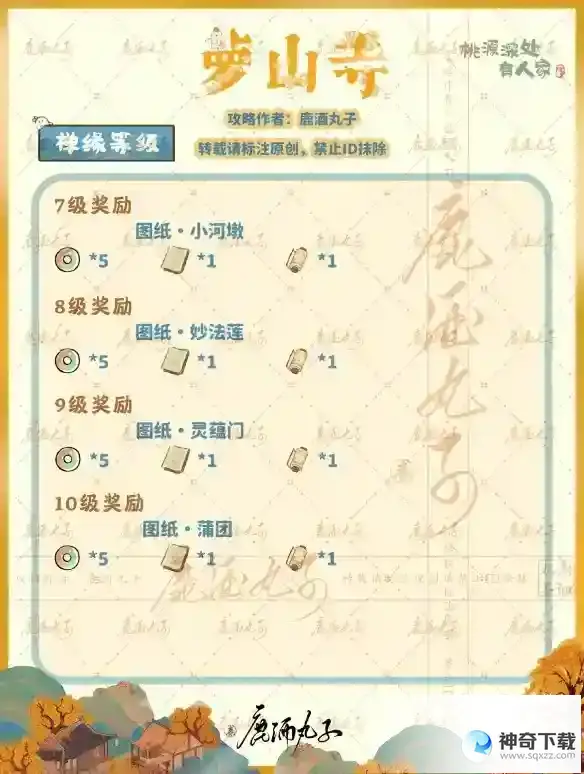 萝山寺
桃源深处
有人家
攻略作者：鹿酒丸子
禅缘等级
转载请标注原创，禁止ID抹除
7级奖励
图纸·小河墩
*5 *1 *1
8级奖励
图纸·妙法莲
*5 *1 *1
9级奖励
图纸·灵蕴门
*5 *1 *1
10级奖励
图纸·蒲团
*5 *1 *1
鹿酒丸子
鹿酒丸子
鹿酒丸子
神奇下载
www.sqxzz.com